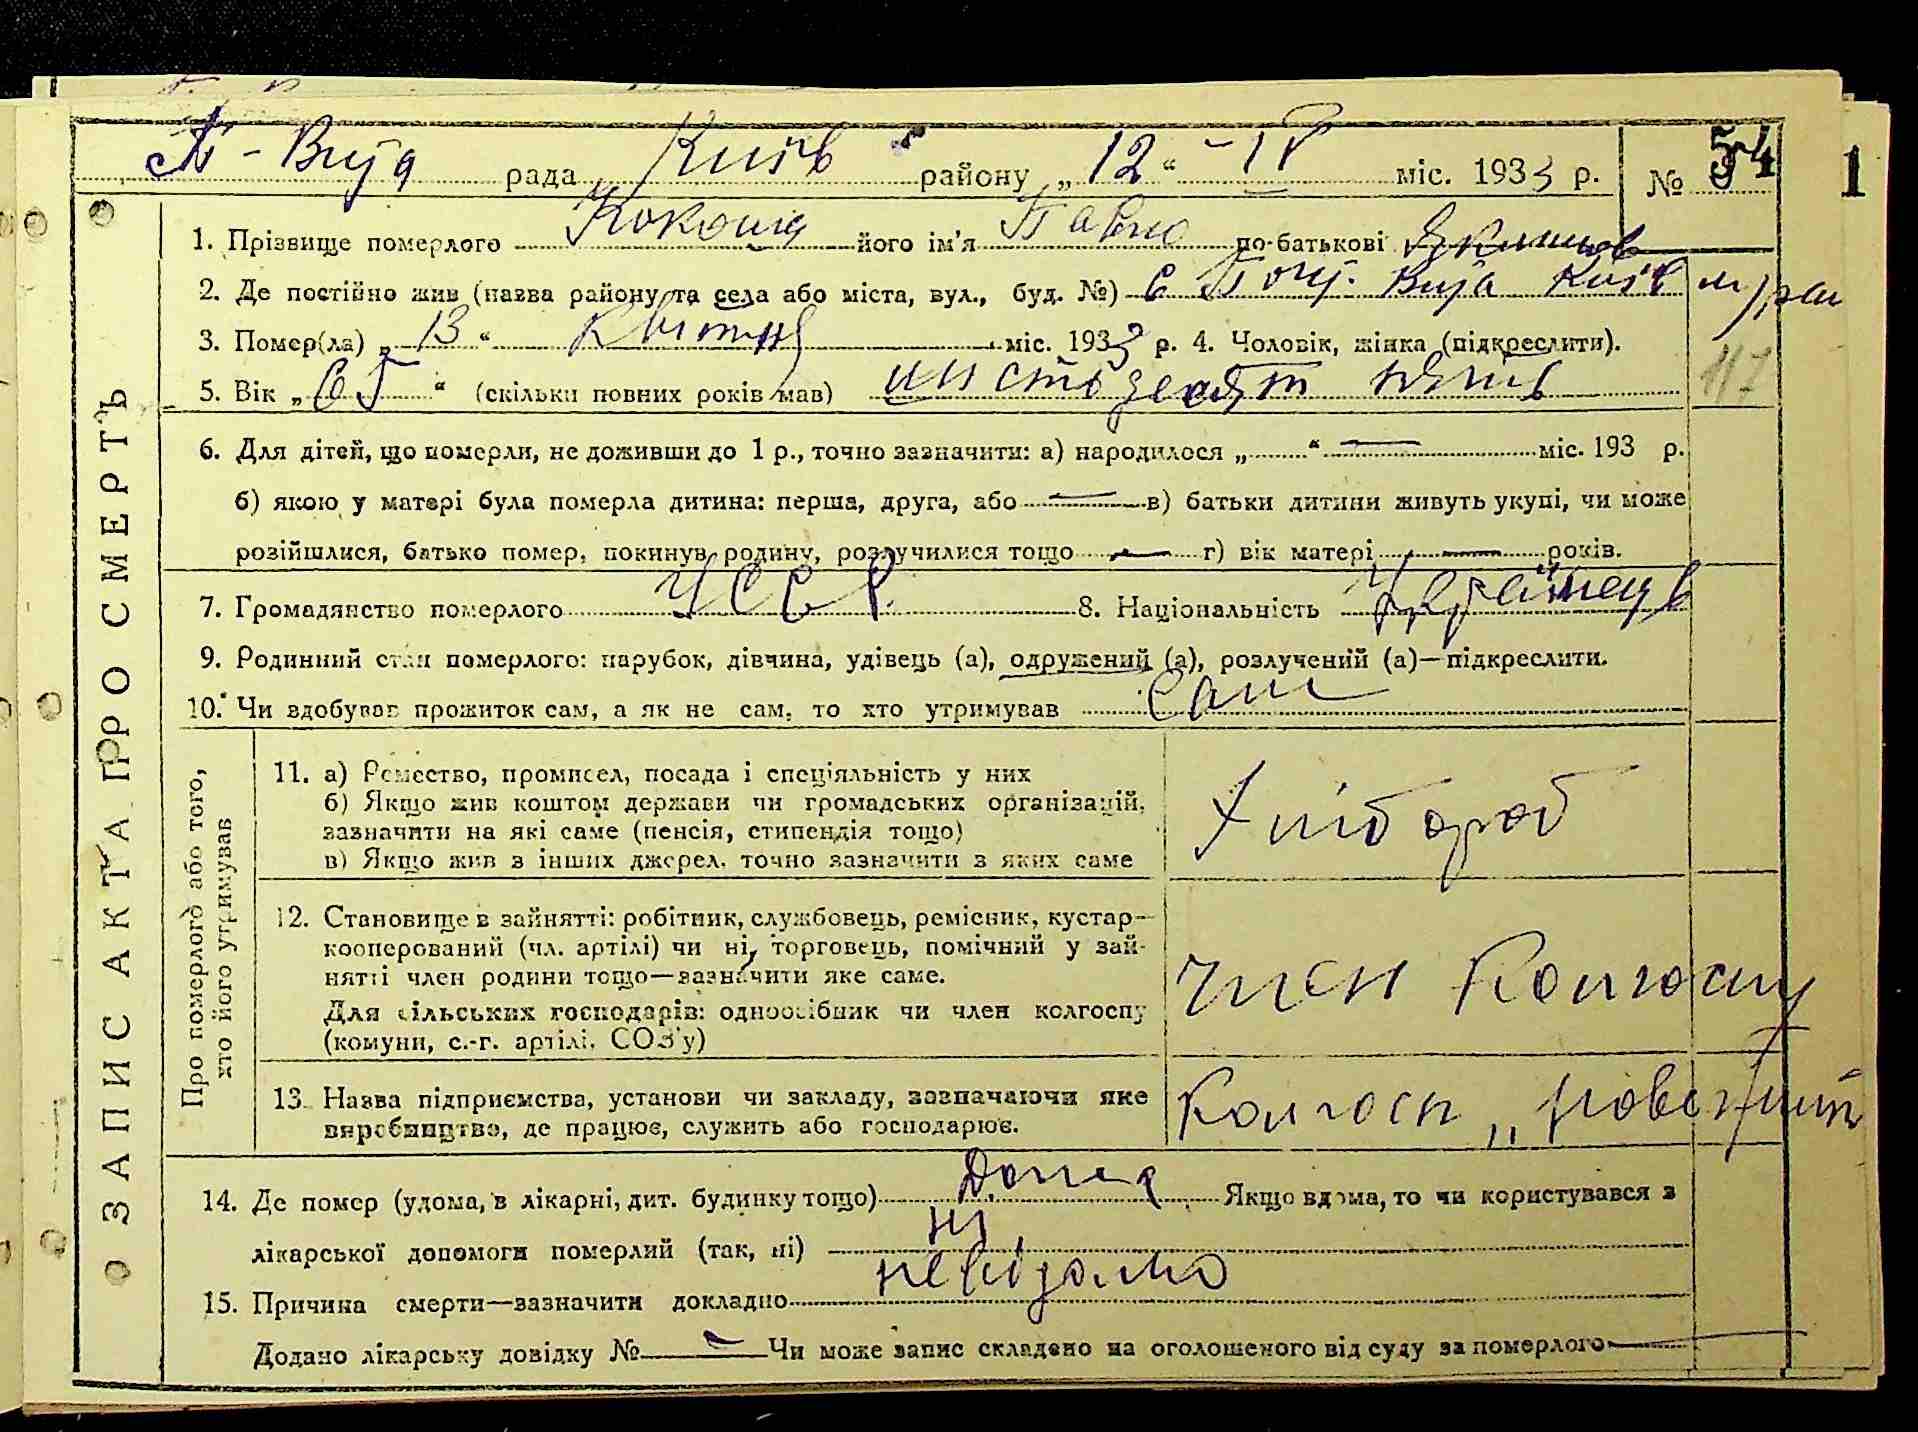 П-Вита рада Київ району „12“ - IV міс. 1933 р. № 54
1
1. Прізвище померлого Кокоша його ім'я Павло по-батькові Якимов
2. Де постійно жив (назва району та села або міста, вул., буд. №) с Пошт. Вита Київ м/рай
3. Помер(ла) „13“ квітня міс. 1933 р. 4. Чоловік, жінка (підкреслити).
117
5. Вік „65“ (скільки повних років мав) шістьдесят пять
6. Для дітей, що померли, не доживши до 1 р., точно зазначити: а) народилося „ “ — міс. 193 р.
б) якою у матері була померла дитина: перша, друга, або — в) батьки дитини живуть укупі, чи може
розійшлися, батько помер, покинув родину, розлучилися тощо — г) вік матері — років.
7. Громадянство померлого УССР 8. Національність Українець
9. Родинний стан померлого: парубок, дівчина, удівець (а), одружений (а), розлучений (а)—підкреслити.
10. Чи здобував прожиток сам, а як не сам, то хто утримував сам
ЗАПИС АКТА ПРО СМЕРТЬ
Про померлого або того,
хто його утримував
11. а) Ремество, промисел, посада і спеціяльність у них
б) Якщо жив коштом держави чи громадських організацій,
зазначити на які саме (пенсія, стипендія тощо)
в) Якщо жив з інших джерел, точно зазначити з яких саме
Хлібороб
12. Становище в зайнятті: робітник, службовець, ремісник, кустар—
кооперований (чл. артілі) чи ні, торговець, помічний у зай-
нятті член родини тощо—зазначити яке саме.
Для сільських господарів: одноосібник чи член колгоспу
(комуни, с.-г. артілі, СОЗ'у)
член колгоспу
13. Назва підприємства, установи чи закладу, зазначаючи яке
виробництво, де працює, служить або господарює.
Колгосп
14. Де помер (удома, в лікарні, дит. будинку тощо) Дома Якщо вдома, то чи користувався з
лікарської допомоги померлий (так, ні) ні
15. Причина смерти—зазначити докладно невідомо
Додано лікарську довідку № — Чи може запис складено на оголошеного від суду за померлого —